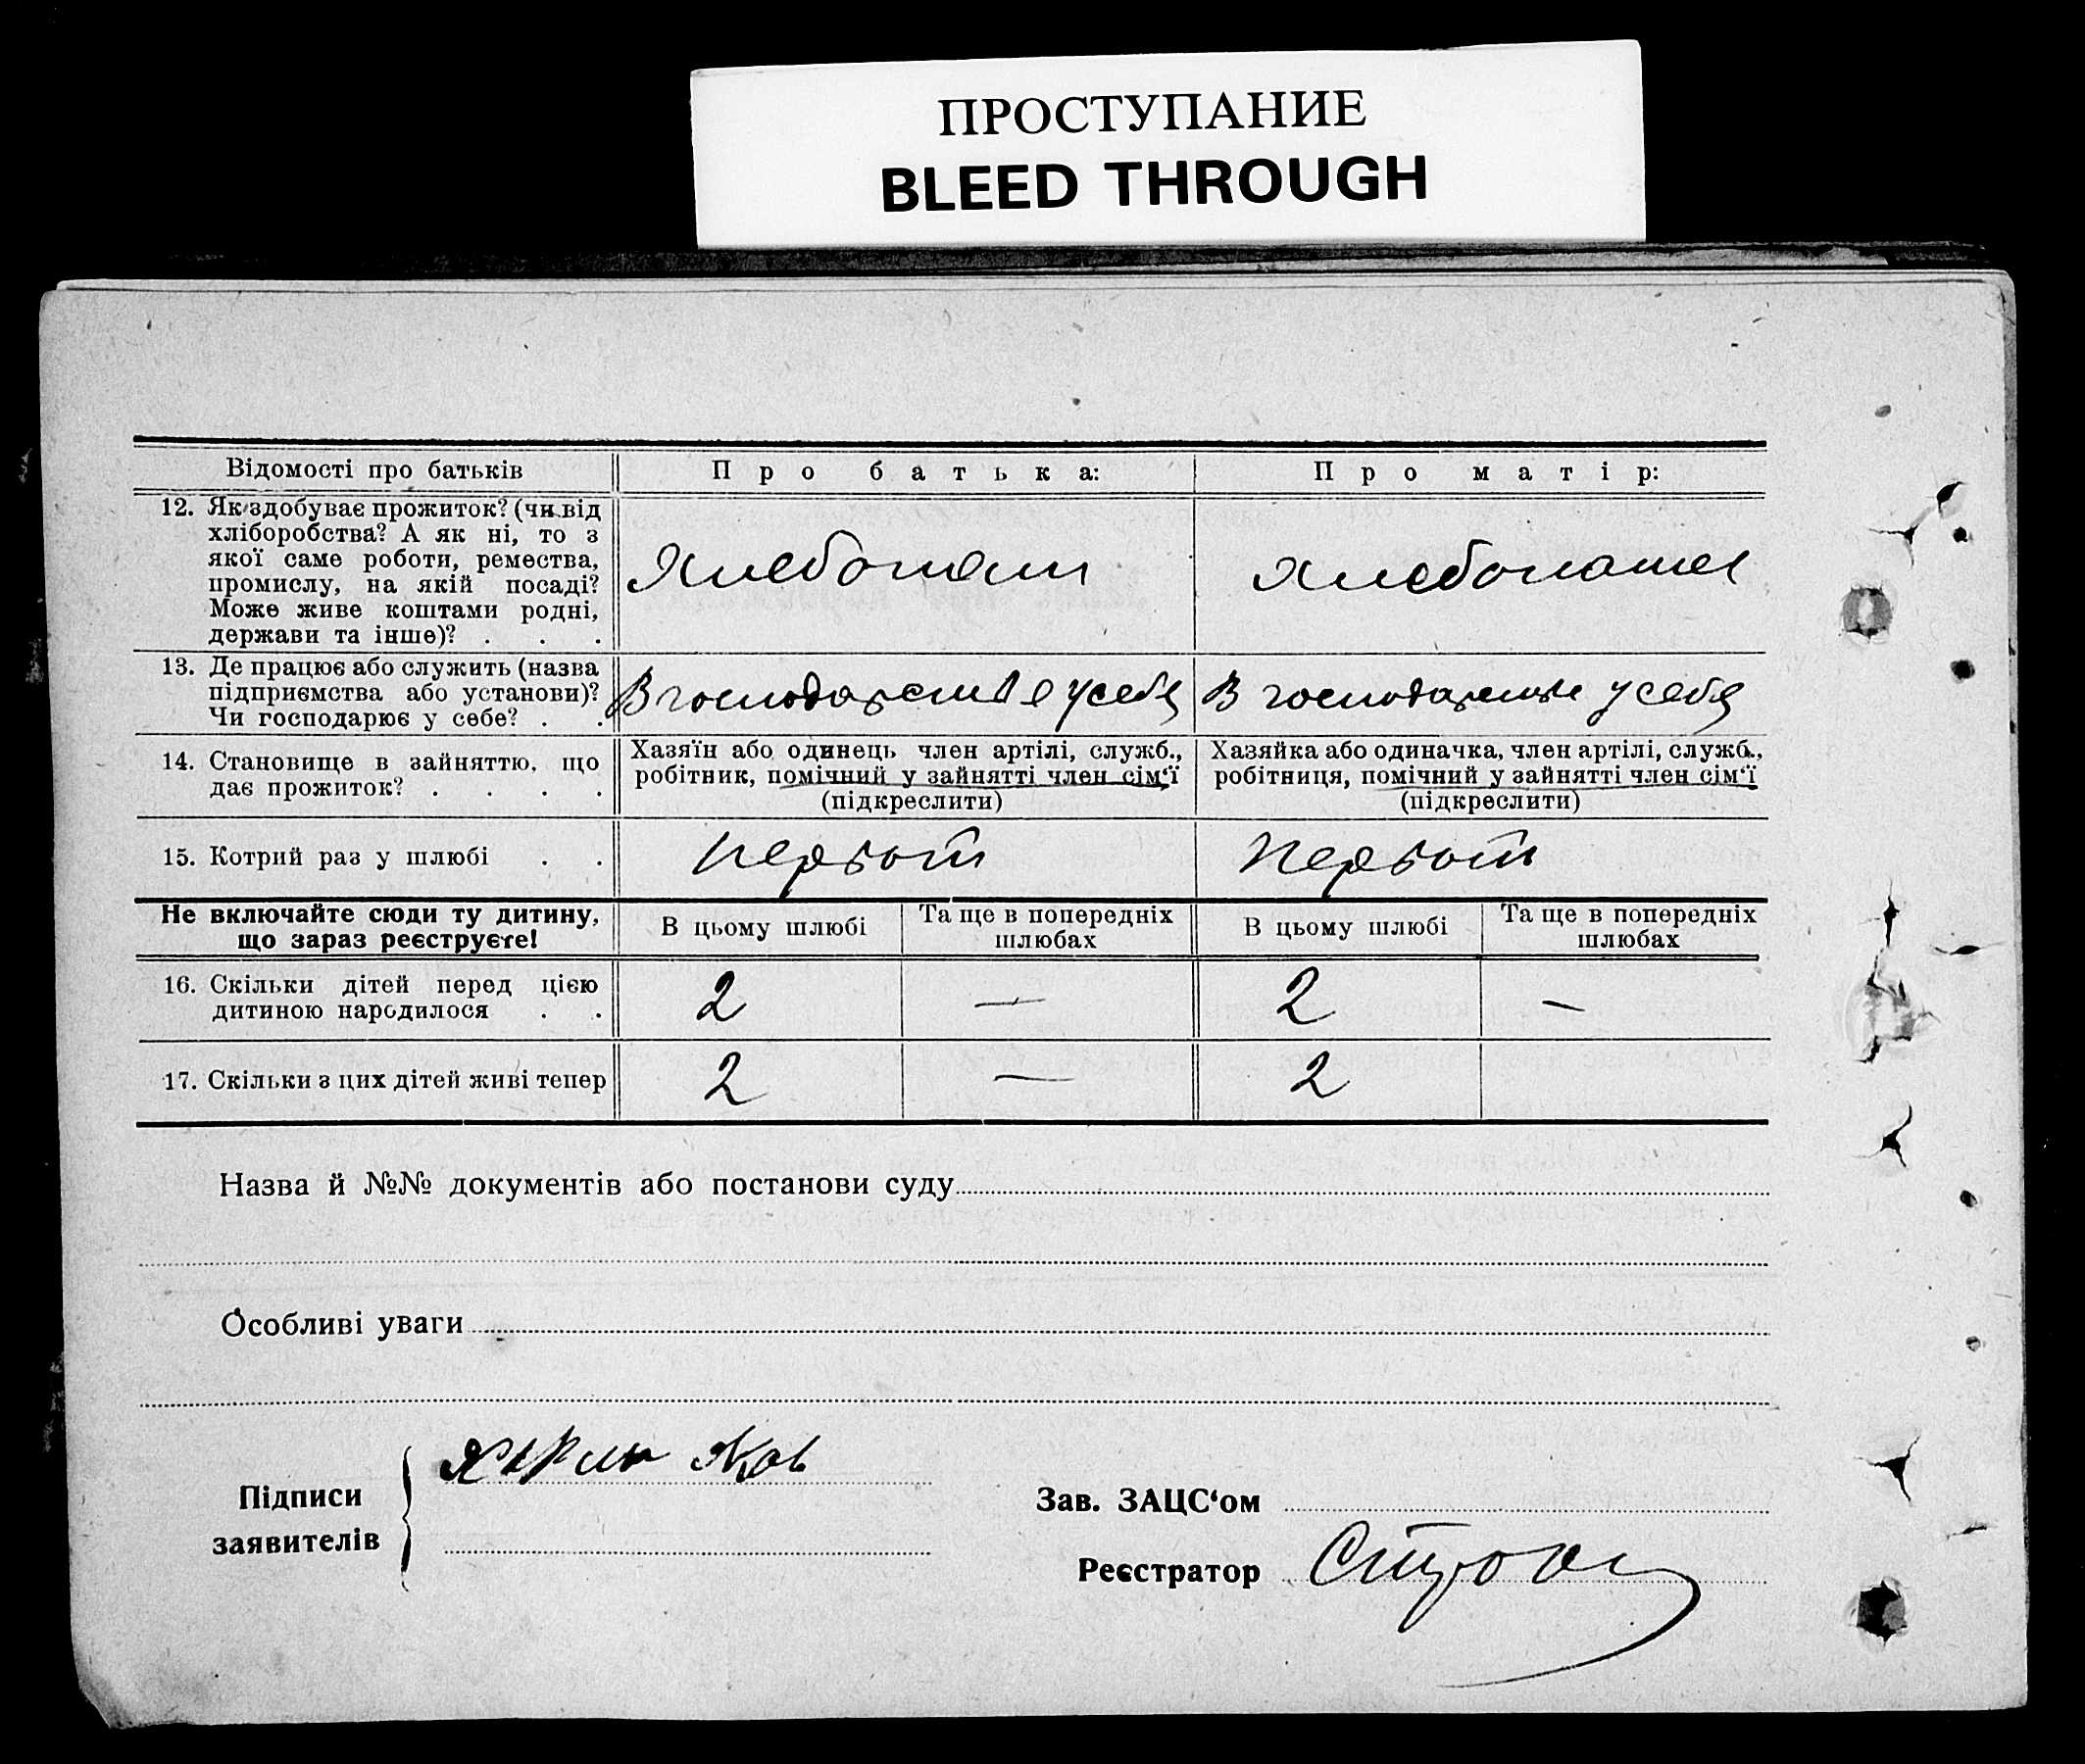 ПРОСТУПАНИЕ
BLEED THROUGH
Відомості про батьків
Про батька:
Про матір:
12. Як здобуває прожиток? (чи від
хліборобства? А як ні, то з
якої саме роботи, ремества,
промислу, на якій посаді?
Може живе коштами родні,
держави та інше)? . . .
Хлебопаш
Хлебопашец
13. Де працює або служить (назва
підприємства або установи)?
Чи господарює у себе? . .
В господарстве у себя
В господарстве у себя
14. Становище в зайняттю, що
дає прожиток? . . . .
Хазяїн або одинець член артілі, служб.,
робітник, помічний у зайнятті член сім'ї
(підкреслити)
Хазяйка або одиначка, член артілі, служб.,
робітниця, помічний у зайнятті член сім'ї
(підкреслити)
15. Котрий раз у шлюбі . .
первой
первой
Не включайте сюди ту дитину,
що зараз реєструєте!
В цьому шлюбі
Та ще в попередніх
шлюбах
В цьому шлюбі
Та ще в попередніх
шлюбах
16. Скільки дітей перед цією
дитиною народилося . .
2
—
2
—
17. Скільки з цих дітей живі тепер
2
—
2
Назва й №№ документів або постанови суду
Особливі уваги
Підписи
заявителів
Яков
Зав. ЗАЦС'ом
Реєстратор